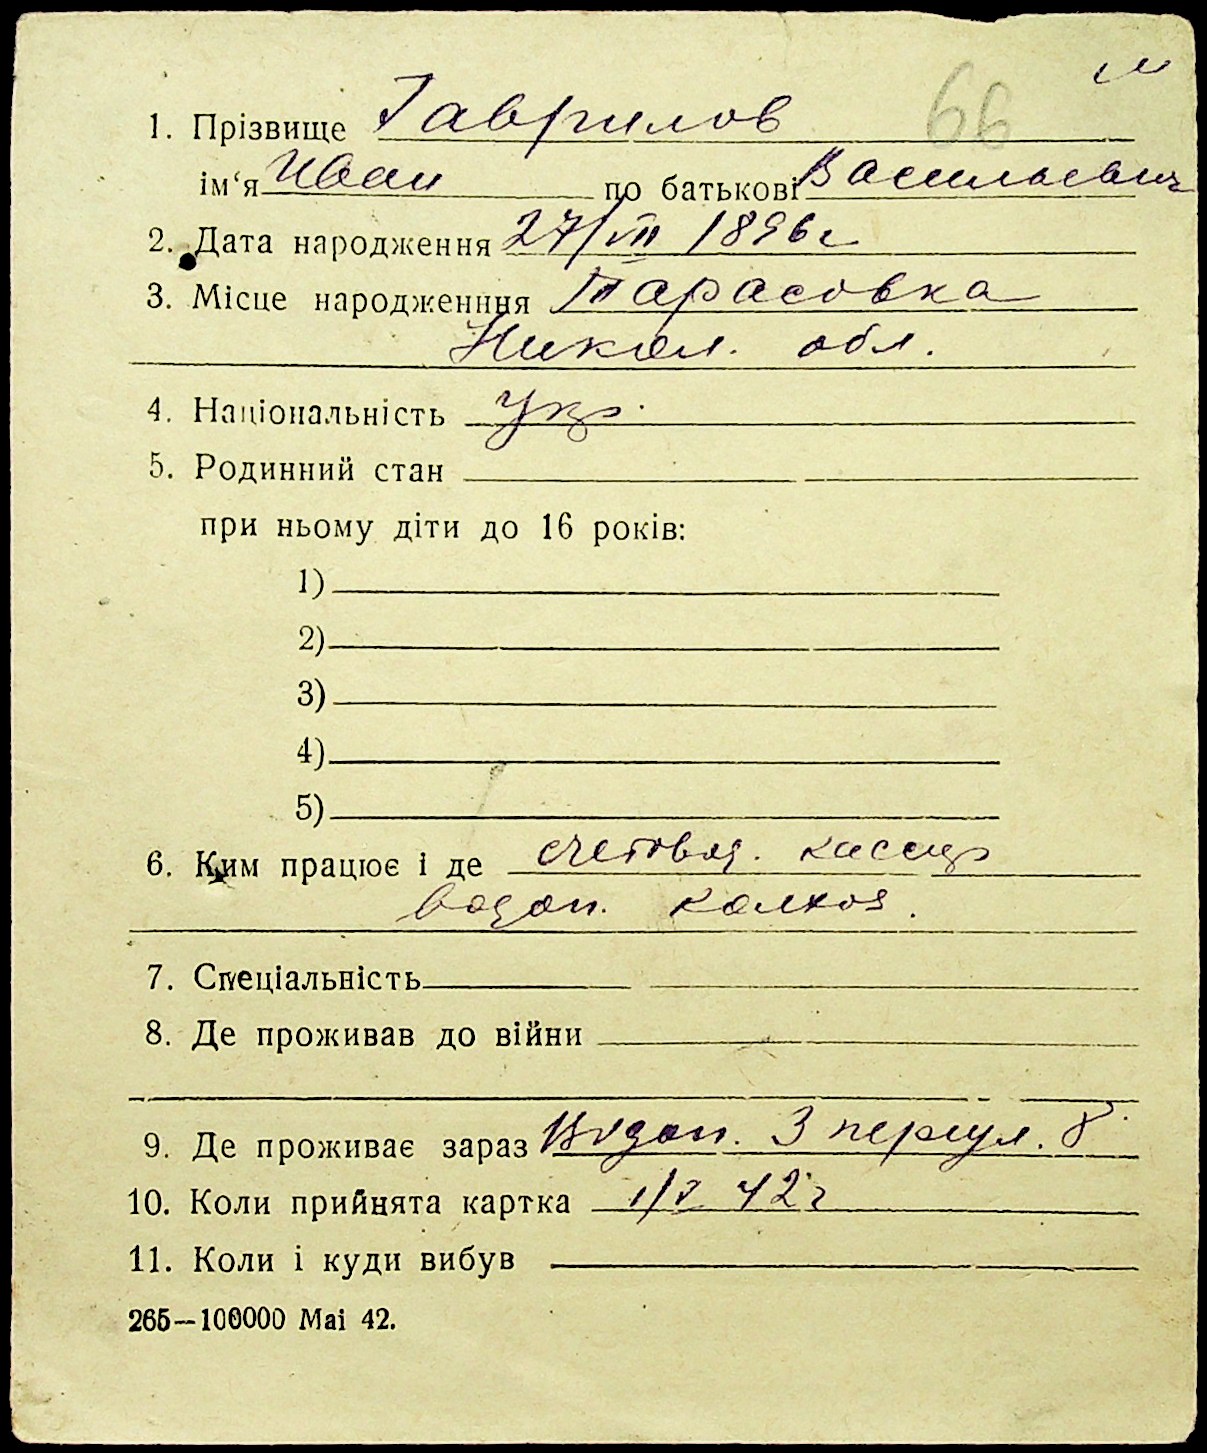 м
66
1. Прізвище Гаврилов
ім‘я Иван по батькові Васильевич
2. Дата народження 27/VII 1896 г
3. Місце народженння Тарасовка
Никол. обл.
4. Національність укр.
5. Родинний стан
при ньому діти до 16 років:
1)
2)
3)
4)
5)
6. Ким працює і де счетовод. кассир
водоп. колхоз.
7. Спеціальність
8. Де проживав до війни
9. Де проживає зараз Водоп. 3 переул. 8
10. Коли прийнята картка 1/V 42 г
11. Коли і куди вибув
265—100000 Mai 42.